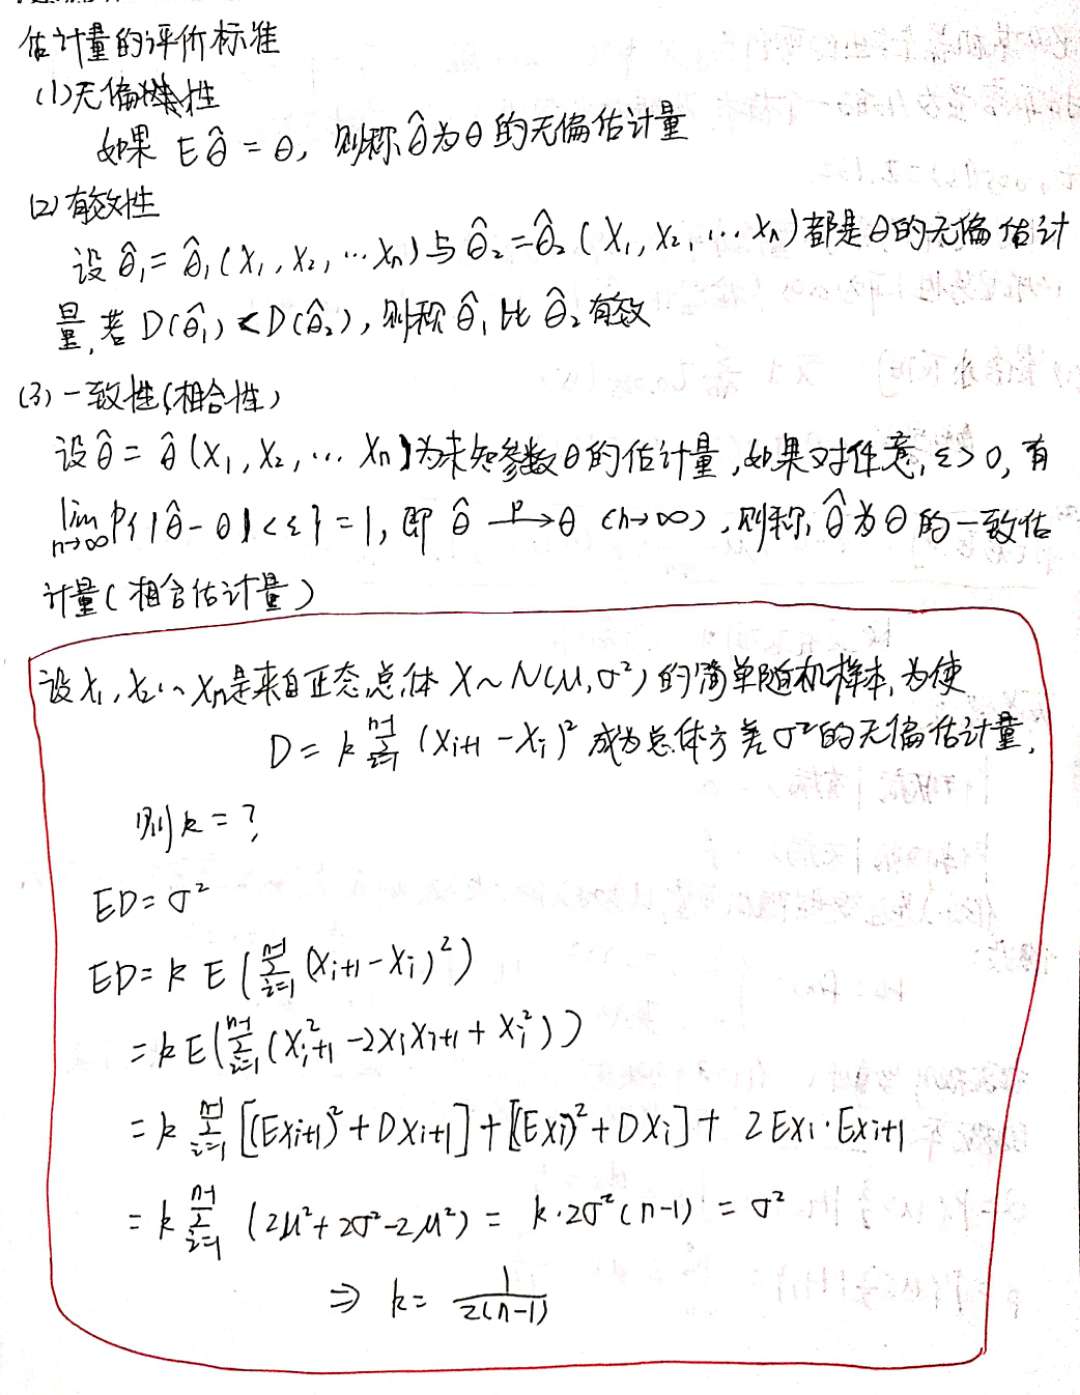 估计量的评价标准
(1)无偏性
如果 Eθ̂ = θ, 则称θ̂为θ的无偏估计量
(2)有效性
设 θ̂₁= θ̂₁(X₁, X₂, …Xn)与 θ̂₂=θ̂₂(X₁, X₂, …Xn)都是θ的无偏估计
量,若 D(θ̂₁)<D(θ̂₂), 则称 θ̂₁比 θ̂₂有效
(3)一致性(相合性)
设θ̂= θ̂(X₁, X₂, … Xn)为未知参数θ的估计量,如果对任意,ε>0,有
lim n→∞ P{|θ̂-θ|<ε}=1, 即 θ̂ —P→ θ (n→∞),则称,θ̂为θ的一致估
计量(相合估计量)
设X₁,X₂,…Xn是来自正态总体X~N(μ,σ²)的简单随机样本,为使
D = k ∑_{i=1}^{n-1} (Xi+1 - Xi)² 成为总体方差σ²的无偏估计量,
则k=?
ED=σ²
ED= k E(∑_{i=1}^{n-1} (Xi+1-Xi)²)
= k E(∑_{i=1}^{n-1} (X²i+1 -2XiXi+1 + Xi²))
= k ∑_{i=1}^{n-1} [(EXi+1)² + DXi+1] + [(EXi)² + DXi] + 2EXi·EXi+1
= k ∑_{i=1}^{n-1} (2μ²+2σ²-2μ²) = k·2σ²(n-1) = σ²
⇒ k= 1/2(n-1)